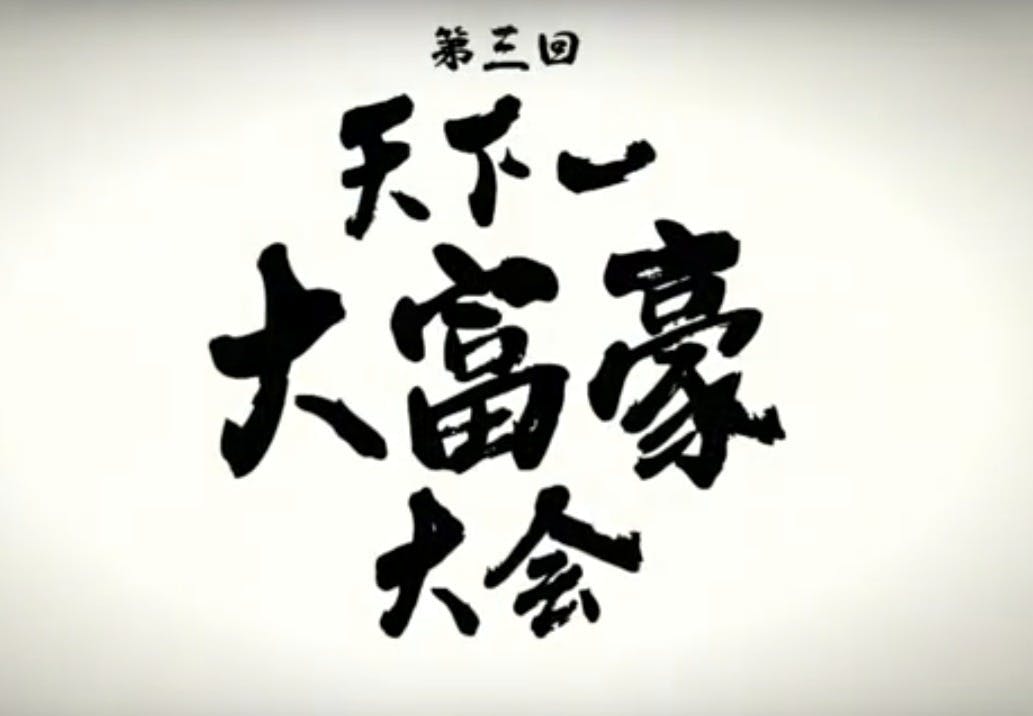 第三回
天下一
大富豪
大会